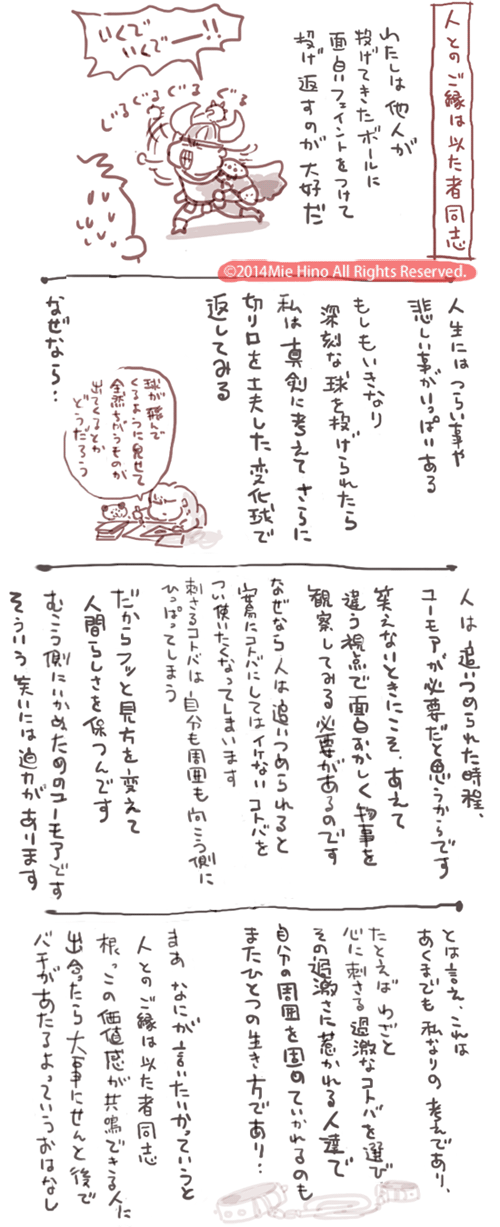 人とのご縁は以た者同志
わたしは他人が
投げてきたボールに
面白いフェイントをつけて
投げ返すのが大好だ
いくで
いくでーー!!
ぐるぐるぐるぐる
©2014Mie Hino All Rights Reserved.
人生にはつらい事や
悲しい事がいっぱいある
もしもいきなり
深刻な球を投げられたら
私は真剣に考えてさらに
切り口を工夫した変化球で
返してみる
なぜなら…
球が飛んで
くるように見せて
全然ちがうものが
出てくるとか
どうだろう
人は追いつめられた時程、
ユーモアが必要だと思うからです
笑えないときにこそ、あえて
違う視点で面白おかしく物事を
観察してみる必要があるのです
なぜなら人は追いつめられると
安易にコトバにしてはイケないコトバを
つい使いたくなってしまいます
刺さるコトバは自分も周囲も向こう側に
ひっぱってしまう
だからフッと見方を変えて
人間らしさを保つんです
むこう側にいかぬためのユーモアです
そういう笑いには迫力があります
とは言え、これは
あくまでも私なりの考えであり、
たとえばわざと
心に刺さる過激なコトバを選び
その過激さに惹かれる人達で
自分の周囲を固めていかれるのも
またひとつの生き方であり…
まぁなにが言いたいかっていうと
人とのご縁は以た者同志
根っこの価値感が共鳴できる人に
出会ったら大事にせんと後で
バチがあたるよっていうおはなし